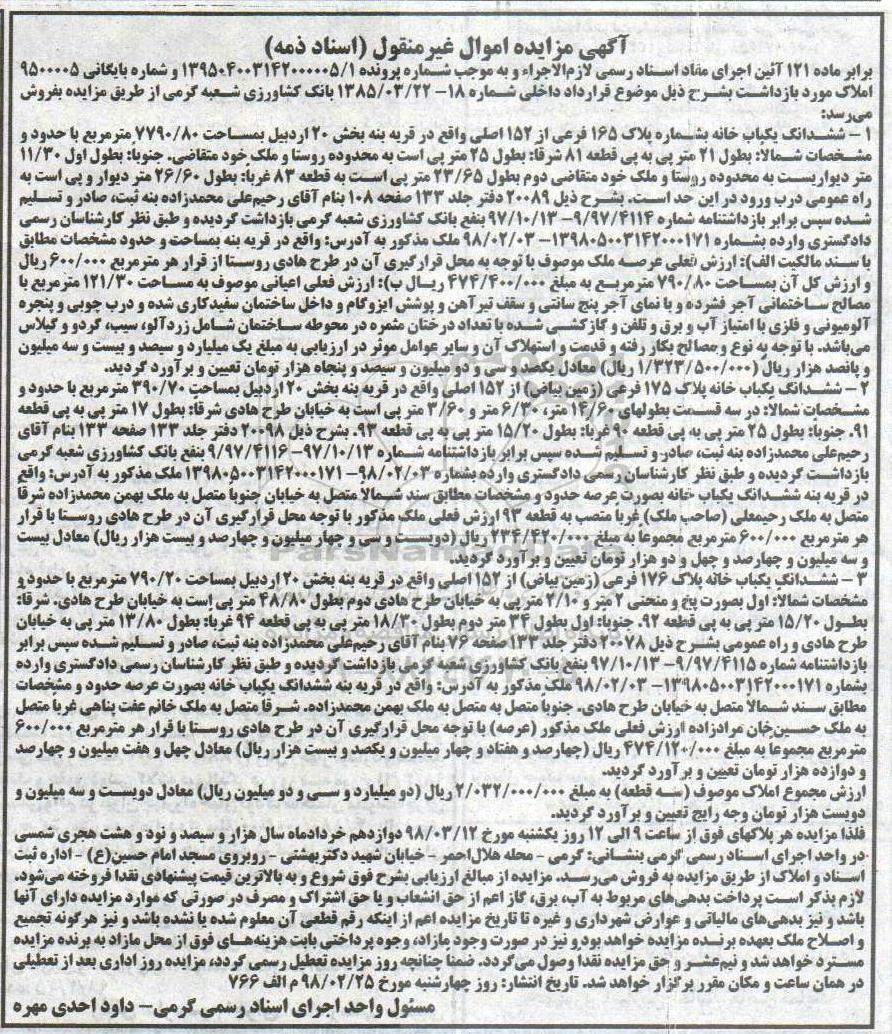 آگهی مزایده اموال غیرمنقول (اسناد ذمه)
برابر ماده ۱۲۱ آئین اجرای مفاد اسناد رسمی لازم‌الاجراء و به موجب شماره پرونده ۱۳۹۵۰۴۰۰۳۱۴۲۰۰۰۰۰۵/۱ و شماره بایگانی ۹۵۰۰۰۰۵
املاک مورد بازداشت بشرح ذیل موضوع قرارداد داخلی شماره ۱۸- ۱۳۸۵/۰۳/۲۲ بانک کشاورزی شعبه گرمی از طریق مزایده بفروش
می‌رسد:
۱ – ششدانگ یکباب خانه بشماره پلاک ۱۶۵ فرعی از ۱۵۲ اصلی واقع در قریه بنه بخش ۲۰ اردبیل بمساحت ۷۷۹۰/۸۰ مترمربع با حدود و
مشخصات شمالا: بطول ۲۱ متر پی به پی قطعه ۸۱ شرقا: بطول ۲۵ متر پی است به محدوده روستا و ملک خود متقاضی. جنوبا: بطول اول ۱۱/۳۰
متر دیواریست به محدوده روستا و ملک خود متقاضی دوم بطول ۲۳/۶۵ متر پی است به قطعه ۸۳ غربا: بطول ۲۶/۶۰ متر دیوار و پی است به
راه عمومی درب ورود در این حد است. بشرح ذیل ۲۰۰۸۹ دفتر جلد ۱۳۳ صفحه ۱۰۸ بنام آقای رحیم‌علی محمدزاده بنه ثبت، صادر و تسلیم
شده سپس برابر بازداشتنامه شماره ۹/۹۷/۴۱۱۴- ۹۷/۱۰/۱۳ بنفع بانک کشاورزی شعبه گرمی بازداشت گردیده و طبق نظر کارشناسان رسمی
دادگستری وارده بشماره ۱۳۹۸۰۵۰۰۳۱۴۲۰۰۰۱۷۱- ۹۸/۰۲/۰۳ ملک مذکور به آدرس: واقع در قریه بنه بمساحت و حدود مشخصات مطابق
با سند مالکیت الف): ارزش فعلی عرصه ملک موصوف با توجه به محل قرارگیری آن در طرح هادی روستا از قرار هر مترمربع ۶۰۰/۰۰۰ ریال
و ارزش کل آن بمساحت ۷۹۰/۸۰ مترمربع به مبلغ ۴۷۴/۴۰۰/۰۰۰ ریال ب): ارزش فعلی اعیانی موصوف به مساحت ۱۲۱/۳۰ مترمربع با
مصالح ساختمانی آجر فشرده و با نمای آجر پنج سانتی و سقف تیرآهن و پوشش ایزوگام و داخل ساختمان سفیدکاری شده و درب چوبی و پنجره
آلومیونی و فلزی با امتیاز آب و برق و تلفن و گازکشی شده با تعداد درختان مثمره در محوطه ساختمان شامل زردآلو، سیب، گردو و گیلاس
می‌باشد. با توجه به نوع و مصالح بکار رفته و قدمت و استهلاک آن و سایر عوامل موثر در ارزیابی به مبلغ یک میلیارد و سیصد و بیست و سه میلیون
و پانصد هزار ریال (۱/۳۲۳/۵۰۰/۰۰۰ ریال) معادل یکصد و سی و دو میلیون و سیصد و پنجاه هزار تومان تعیین و برآورد گردید.
۲ – ششدانگ یکباب خانه پلاک ۱۷۵ فرعی (زمین بیاض) از ۱۵۲ اصلی واقع در قریه بنه بخش ۲۰ اردبیل بمساحت ۳۹۰/۷۰ مترمربع با حدود و
مشخصات شمالا: در سه قسمت بطولهای ۱۴/۶۰ متر، ۶/۳۰ متر و ۳/۶۰ متر پی است به خیابان طرح هادی شرقا: بطول ۱۷ متر پی به پی قطعه
۹۱. جنوبا: بطول ۲۵ متر پی به پی قطعه ۹۰ غربا: بطول ۱۵/۲۰ متر پی به پی قطعه ۹۳. بشرح ذیل ۲۰۰۹۸ دفتر جلد ۱۳۳ صفحه ۱۳۳ بنام آقای
رحیم‌علی محمدزاده بنه ثبت، صادر و تسلیم شده سپس برابر بازداشتنامه شماره ۹۷/۱۰/۱۳- ۹/۹۷/۴۱۱۶ بنفع بانک کشاورزی شعبه گرمی
بازداشت گردیده و طبق نظر کارشناسان رسمی دادگستری وارده بشماره ۹۸/۰۲/۰۳- ۱۳۹۸۰۵۰۰۳۱۴۲۰۰۰۱۷۱ ملک مذکور به آدرس: واقع
در قریه بنه ششدانگ یکباب خانه بصورت عرصه حدود و مشخصات مطابق سند شمالا متصل به خیابان جنوبا متصل به ملک بهمن محمدزاده شرقا
متصل به ملک رحیمعلی (صاحب ملک) غربا متصب به قطعه ۹۳ ارزش فعلی ملک مذکور با توجه محل قرارگیری آن در طرح هادی روستا با قرار
هر مترمربع ۶۰۰/۰۰۰ مترمربع مجموعا به مبلغ ۲۳۴/۴۲۰/۰۰۰ ریال (دویست و سی و چهار میلیون و چهارصد و بیست هزار ریال) معادل بیست
و سه میلیون و چهارصد و چهل و دو هزار تومان تعیین و برآورد گردید.
۳ – ششدانگ یکباب خانه پلاک ۱۷۶ فرعی (زمین بیاض) از ۱۵۲ اصلی واقع در قریه بنه بخش ۲۰ اردبیل بمساحت ۷۹۰/۲۰ مترمربع با حدود و
مشخصات شمالا: اول بصورت پخ و منحنی ۲ متر و ۲/۱۰ متر پی به خیابان طرح هادی دوم بطول ۴۸/۸۰ متر پی است به خیابان طرح هادی. شرقا:
بطول ۱۵/۲۰ متر پی به پی قطعه ۹۲. جنوبا: اول بطول ۳۴ متر دوم بطول ۱۸/۳۰ متر پی به پی قطعه ۹۴ غربا: بطول ۱۳/۸۰ متر پی به خیابان
طرح هادی و راه عمومی بشرح ذیل ۲۰۰۷۸ دفتر جلد ۱۳۳ صفحه ۷۶ بنام آقای رحیم‌علی محمدزاده بنه ثبت، صادر و تسلیم شده سپس برابر
بازداشتنامه شماره ۹/۹۷/۴۱۱۵- ۹۷/۱۰/۱۳ بنفع بانک کشاورزی شعبه گرمی بازداشت گردیده و طبق نظر کارشناسان رسمی دادگستری وارده
بشماره ۱۳۹۸۰۵۰۰۳۱۴۲۰۰۰۱۷۱- ۹۸/۰۲/۰۳ ملک مذکور به آدرس: واقع در قریه بنه ششدانگ یکباب خانه بصورت عرصه حدود و مشخصات
مطابق سند شمالا متصل به خیابان طرح هادی. جنوبا متصل به متصل به ملک بهمن محمدزاده. شرقا متصل به ملک خانم عفت پناهی غربا متصل
به ملک حسین‌خان مرادزاده ارزش فعلی ملک مذکور (عرصه) با توجه محل قرارگیری آن در طرح هادی روستا با قرار هر مترمربع ۶۰۰/۰۰۰
مترمربع مجموعا به مبلغ ۴۷۴/۱۲۰/۰۰۰ ریال (چهارصد و هفتاد و چهار میلیون و یکصد و بیست هزار ریال) معادل چهل و هفت میلیون و چهارصد
و دوازده هزار تومان تعیین و برآورد گردید.
ارزش مجموع املاک موصوف (سه قطعه) به مبلغ ۲/۰۳۲/۰۰۰/۰۰۰ ریال (دو میلیارد و سی و دو میلیون ریال) معادل دویست و سه میلیون و
دویست هزار تومان وجه رایج تعیین و برآورد گردید.
فلذا مزایده هر پلاکهای فوق از ساعت ۹ الی ۱۲ روز یکشنبه مورخ ۹۸/۰۳/۱۲ دوازدهم خردادماه سال هزار و سیصد و نود و هشت هجری شمسی
در واحد اجرای اسناد رسمی گرمی بنشانی: گرمی – محله هلال‌احمر – خیابان شهید دکتر بهشتی – روبروی مسجد امام حسین(ع) – اداره ثبت
اسناد و املاک از طریق مزایده به فروش می‌رسد. مزایده از مبالغ ارزیابی بشرح فوق شروع و به بالاترین قیمت پیشنهادی نقدا فروخته می‌شود.
لازم بذکر است پرداخت بدهی‌های مربوط به آب، برق، گاز اعم از حق انشعاب و یا حق اشتراک و مصرف در صورتی که موارد مزایده دارای آنها
باشد و نیز بدهی‌های مالیاتی و عوارض شهرداری و غیره تا تاریخ مزایده اعم از اینکه رقم قطعی آن معلوم شده یا نشده باشد و نیز هرگونه تجمیع
و اصلاح ملک بعهده برنده مزایده خواهد بود و نیز در صورت وجود مازاد، وجوه پرداختی بابت هزینه‌های فوق از محل مازاد به برنده مزایده
مسترد خواهد شد و نیم‌عشر و حق مزایده نقدا وصول می‌گردد. ضمنا چنانچه روز مزایده تعطیل رسمی گردد، مزایده روز اداری بعد از تعطیلی
در همان ساعت و مکان مقرر برگزار خواهد شد. تاریخ انتشار: روز چهارشنبه مورخ ۹۸/۰۲/۲۵ م الف ۷۶۶
مسئول واحد اجرای اسناد رسمی گرمی- داود احدی مهره
ParsNamadData